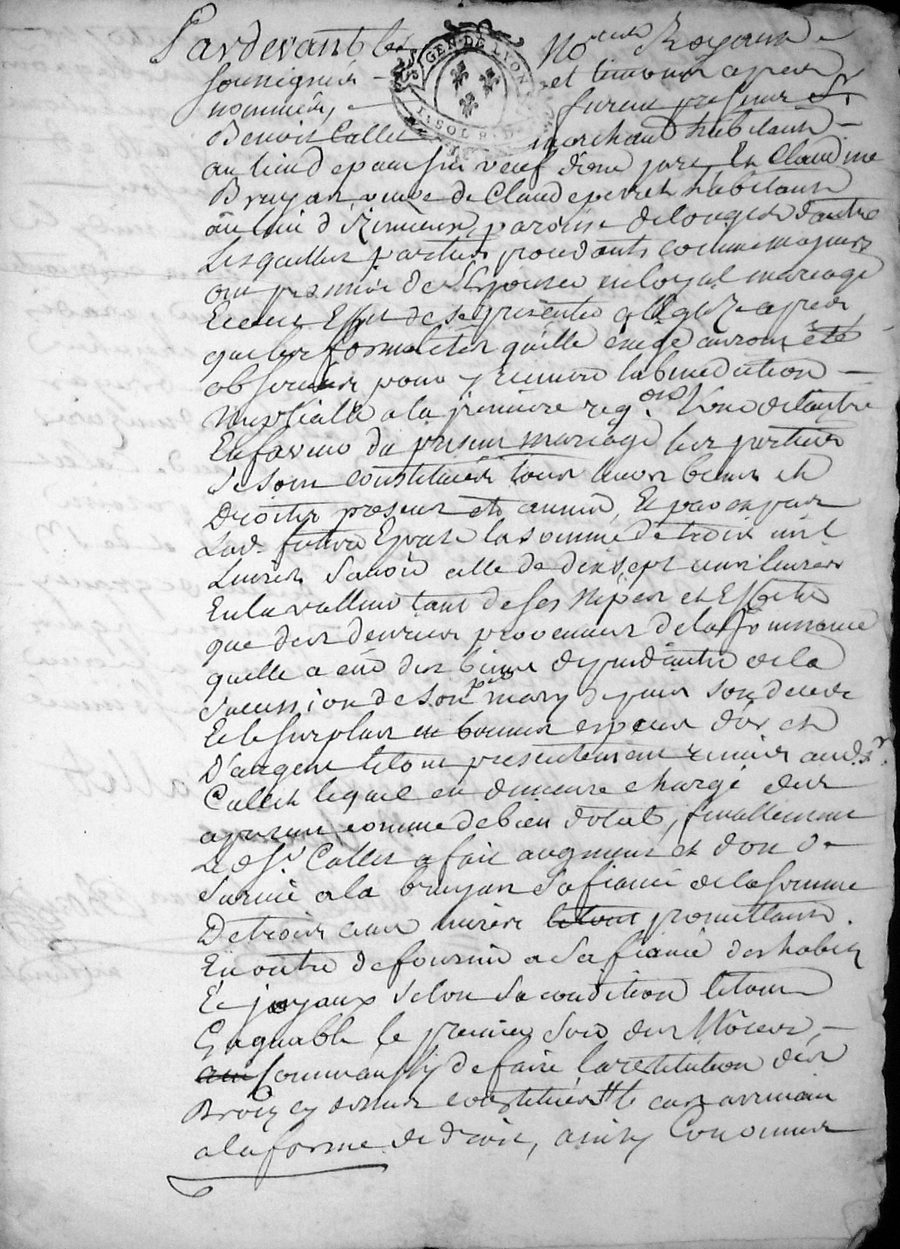 Pardevant les No.res Royaux
soussignés et temoins apres
nommés, furent presens Sr
GEN. DE LYON
Benoit Callet marchand habitant
au lieu de veuf d'une part, Et Claudine
Bruyas veuve de Claude perret habitante
au lieu d' paroisse de longes d'autre
Lesquelles parties procedants comme majeurs
ont promis de s'Epouser en loyal mariage
Et a cet Effet de se presenter a l'Eglize apres
que les formalités qu'elle exige auront été
observées pour y recevoir la benediction
nuptialle a la premiere reqon L'une de l'autre
En faveur du present mariage les parties
se sont constitués tous leurs biens et
Droits presens et avenir, Et par exprés
Lad. future Epouse la somme de trois mil
Livres savoir celle de dix sept cens livres
En la valleur tant de ses nipes et Effets
que des denrées provenues de la joüissance
quelle a eüe des biens dependants de la
succession de son pr mary depuis son deces
Et le surplus en bonnes especes d'or et
D'argent le tout presentement remis aud. Sr.
Callet lequel en demeure chargé des
apresent comme de bien dotal, finallement
Le d. Sr. Callet a fait augment et don de
survie a la bruyas sa fiancée de la somme
De trois cens livres le tout promettant
En outre de fournir a sa fiancée des habits
Et joyaux selon sa condition le tout
Gagnable le premier soir des Nôces,
Comme aussy de faire la restitution des
Droits cy dessus constitués le cas arrivant
a la forme de droit, ainsy Convenu